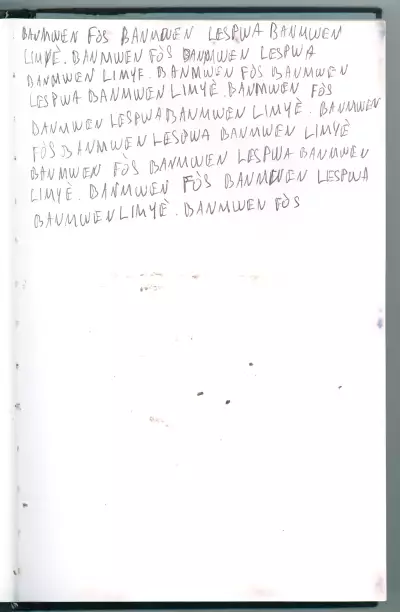 BANMWEN FÒS BANMWEN LESPWA BANMWEN
LIMYÈ. BANMWEN FÒS BANMWEN LESPWA
BANMWEN LIMYE. BANMWEN FÒS BANMWEN
LESPWA BANMWEN LIMYÈ. BANMWEN FÒS
BANMWEN LESPWA BANMWEN LIMYÈ. BANMWEN
FÒS BANMWEN LESPWA BANMWEN LIMYÈ
BANMWEN FÒS BANMWEN LESPWA BANMWEN
LIMYÈ. BANMWEN FÒS BANMWEN LESPWA
BANMWEN LIMYÈ. BANMWEN FÒS